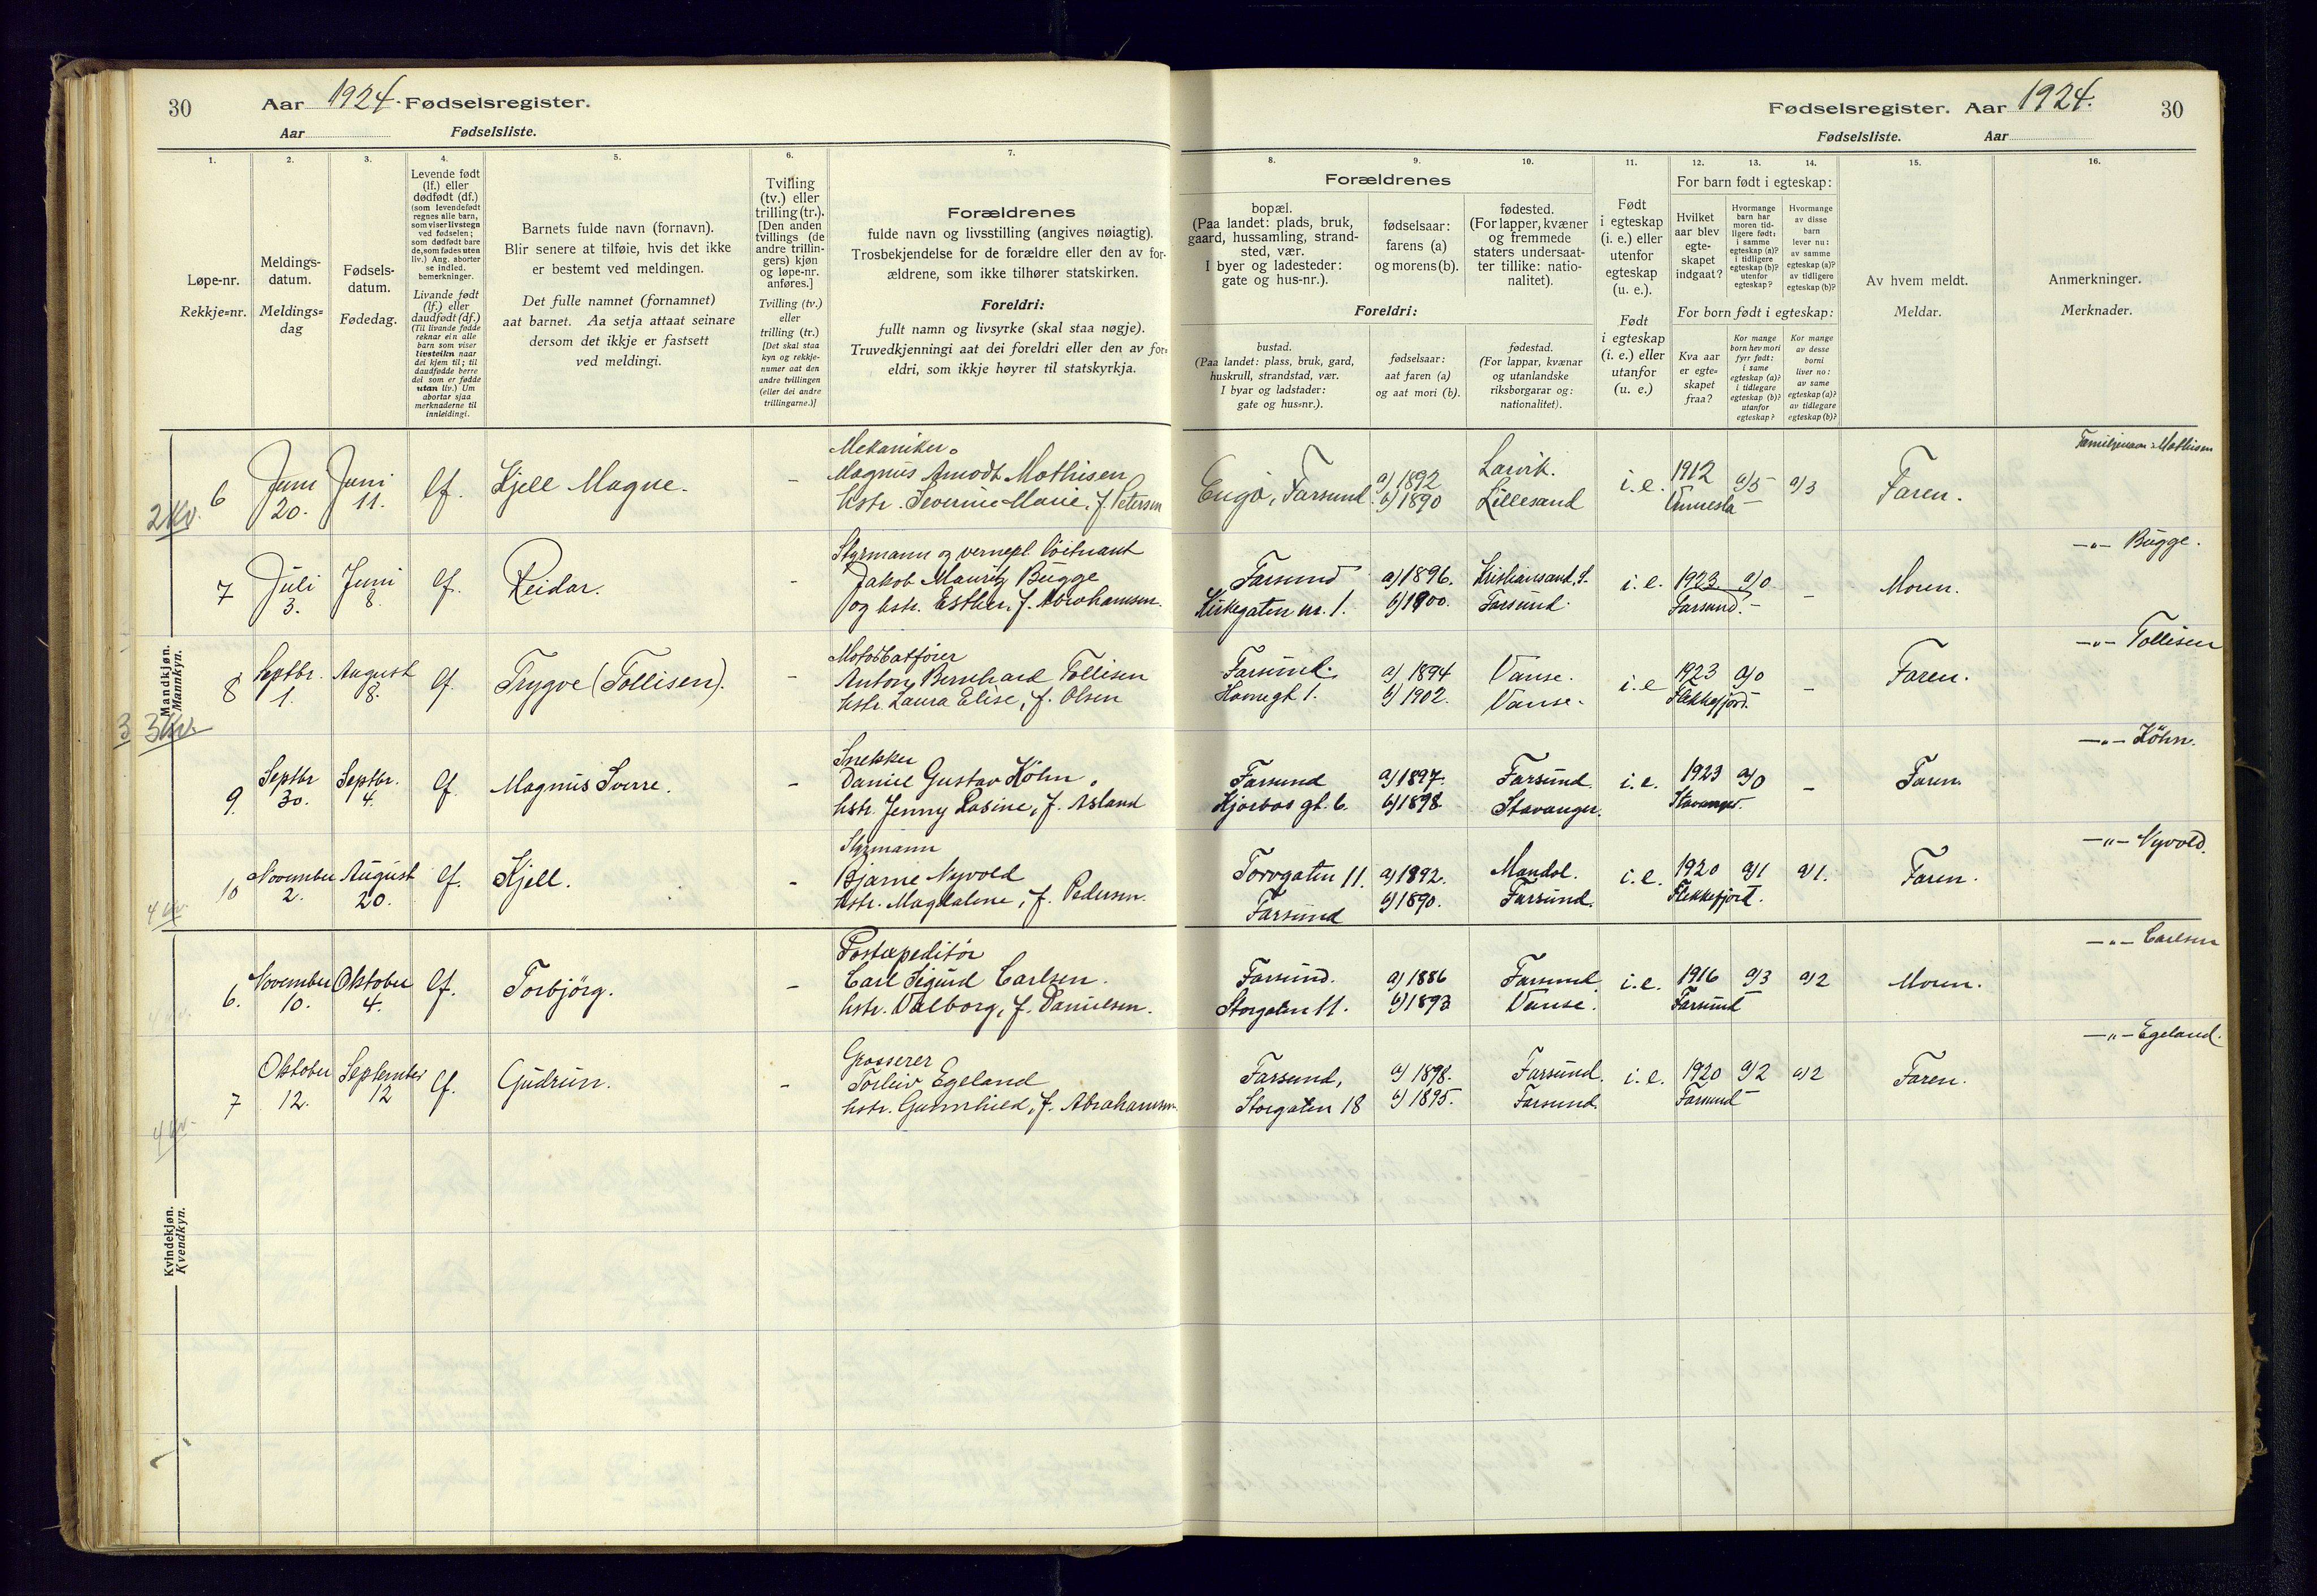 30
Aar 1924. Fødselsregister.
Aar
Fødselsliste.
1.
Løpe-nr.
Rekkje=nr.
2.
Meldings-
datum.
Meldings=
dag
3.
Fødsels-
datum.
Fødedag.
4.
Levende født
(lf.) eller
dødfødt (df.)
(som levendefødt
regnes alle barn,
som viser livstegn
ved fødselen;
som dødfødt bare
de, som fødes uten
liv.) Ang. aborter
se indled.
bemerkninger.
Livande født
(lf.) eller
daudfødt (df.)
(Til livande fødde
reknar ein alle
barn som viser
livsteikn naar
dei kjem til; til
daudfødde berre
dei som er fødde
utan liv.) Um
abortar sjaa
merknaderne til
innleidingi.
5.
Barnets fulde navn (fornavn).
Blir senere at tilføie, hvis det ikke
er bestemt ved meldingen.
Det fulle namnet (fornamnet)
aat barnet. Aa setja attaat seinare
dersom det ikkje er fastsett
ved meldingi.
6.
Tvilling
(tv.) eller
trilling (tr.).
[Den anden
tvillings (de
andre trillin-
gers) kjøn
og løpe-nr.
anføres.]
Tvilling (tv.)
eller
trilling (tr.)
[Det skal staa
kyn og rekkje-
numer aat den
andre tvillingen
(eller dei andre
trillingarne.)]
7.
Forældrenes
fulde navn og livsstilling (angives nøiagtig).
Trosbekjendelse for de forældre eller den av for-
ældrene, som ikke tilhører statskirken.
Foreldri:
fullt namn og livsyrke (skal staa nøgje).
Truvedkjenningi aat dei foreldri eller den av for=
eldri, som ikkje høyrer til statskyrkja.
Mandkjøn.
Mannkyn.
2 Kv.
6
Juni
20.
Juni
11.
lf.
Kjell Magne.
-
Mekaniker
Magnus Amodt Mathisen
hstr. Severine Marie, f. Petersen
7
Juli
3.
Juni
8.
lf.
Reidar.
-
Styrmann og vernepl. løitnant
Jakob Mauritz Bugge
og hstr. Esther, f. Abrahamsen.
8
Septbr.
1.
August
8.
lf.
Trygve (Tollisen).
-
Motorbaatfører
Anton Bernhard Tollisen
hstr. Laura Elise, f. Olsen
3 3 Kv.
9.
Septbr
30.
Septbr.
4.
lf.
Magnus Sverre.
-
Snekker
Daniel Gustav Köhn
hstr. Jenny Rasine, f. Asland
10
November
2.
August
20.
lf.
Kjell.
-
Styrmann
Bjarne Nyvold
hstr. Magdalene, f. Pedersen.
4 kv.
6.
November
10.
Oktober
4.
lf.
Torbjörg.
-
Postexpeditör
Carl Sigurd Carlsen.
hstr. Valborg, f. Danielsen.
7
Oktober
12.
September
12
lf.
Gudrun.
-
Grosserer
Torleiv Egeland
hstr. Gunnhild, f. Abrahamsen.
4 kv.
Kvindekjøn.
Kvendkyn.
Fødselsregister. Aar 1924.
30
Fødselsliste.
Aar
8.
Forældrenes
bopæl.
(Paa landet: plads, bruk,
gaard, hussamling, strand-
sted, vær.
I byer og ladesteder:
gate og hus-nr.).
Foreldri:
bustad.
(Paa landet: plass, bruk, gard,
huskrull, strandstad, vær.
I byar og ladstader:
gate og hus=nr.).
9.
fødselsaar:
farens (a)
og morens (b).
fødselsaar:
aat faren (a)
og aat mori (b).
10.
fødested.
(For lapper, kvæner
og fremmede
staters undersaat-
ter tillike: natio-
nalitet).
fødestad.
(For lappar, kvænar
og utanlandske
riksborgarar og:
nationalitet).
11.
Født
i egteskap
(i. e.) eller
utenfor
egteskap
(u. e.).
Født
i egteskap
(i. e.) eller
utanfor
(u. e.)
12.
13.
14.
For barn født i egteskap:
Hvilket
aar blev
egte-
skapet
indgaat?
Hvormange
barn har
moren tid-
ligere født:
i samme
egteskap (a)?
i tidligere
egteskap (b)?
utenfor
egteskap?
Hvormange
av disse
barn
lever nu:
av samme
egteskap (a)?
av tidligere
egteskap (b)?
For born født i egteskap:
Kva aar
er egte=
skapet
fraa?
Kor mange
born hev mori
fyrr født:
i same
egteskap (a)?
i tidlegare
egteskap (b)?
utanfor
egteskap?
Kor mange
av desse
borni
liver no:
av same
egteskap (a)?
av tidlegare
egteskap (b)?
15.
Av hvem meldt.
Meldar.
16.
Anmerkninger.
Merknader.
Engø, Farsund
a) 1892
b) 1890
Larvik.
Lillesand
i. e.
1912
Vennesla
a/5
a/3
Faren.
Familjenavn: Mathisen
Farsund
Kirkegaten nr. 1.
a) 1896.
b) 1900.
Kristiansand. S.
Farsund.
i. e.
1923
Farsund.
a/0
-
Moren.
-"- Bugge.
Farsund.
Havnegt 1.
a) 1894
b) 1902.
Vanse.
Vanse.
i. e
1923
Flekkefjord.
a/0
-
Faren.
-"- Tollisen
Farsund
Kjørbos gt. 6.
a) 1897.
b) 1898.
Farsund.
Stavanger.
i. e.
1923
Stavanger.
a/0
-
Faren.
-"- Köhn.
Torvgaten 11.
Farsund
a) 1892.
b) 1890.
Mandal.
Farsund.
i. e.
1920
Flekkefjord.
a/1
a/1.
Faren.
-"- Nyvold.
Farsund.
Storgaten 11.
a) 1886
b) 1893
Farsund.
Vanse.
i. e.
1916
Farsund
a/3
a/2
Moren.
-"- Carlsen
Farsund,
Storgaten 18
a) 1898.
b) 1895.
Farsund.
Farsund.
i. e.
1920
Farsund
a/2
a/2
Faren.
-"- Egeland.